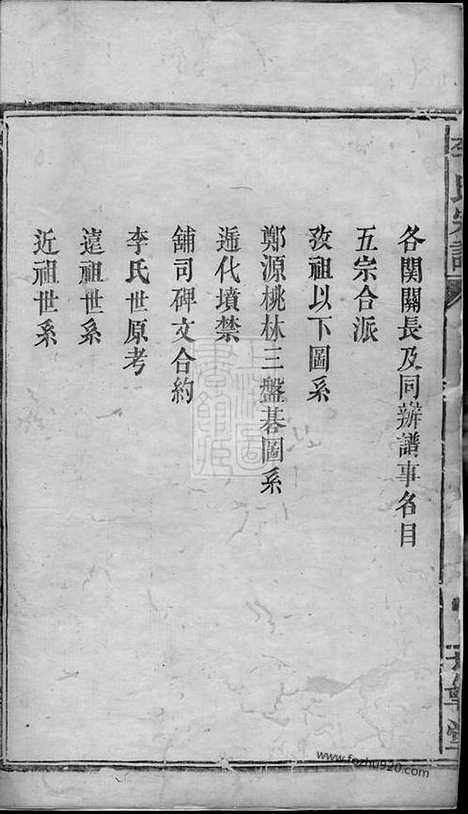 各閔關長及同辦譜事名目
五宗合派
攷祖以下圖系
鄭源桃林三盤碁圖系
遞代墳禁
舖司碑文合約
李氏世原考
遠祖世系
近祖世系
李氏宗譜
www.fozhu920.com